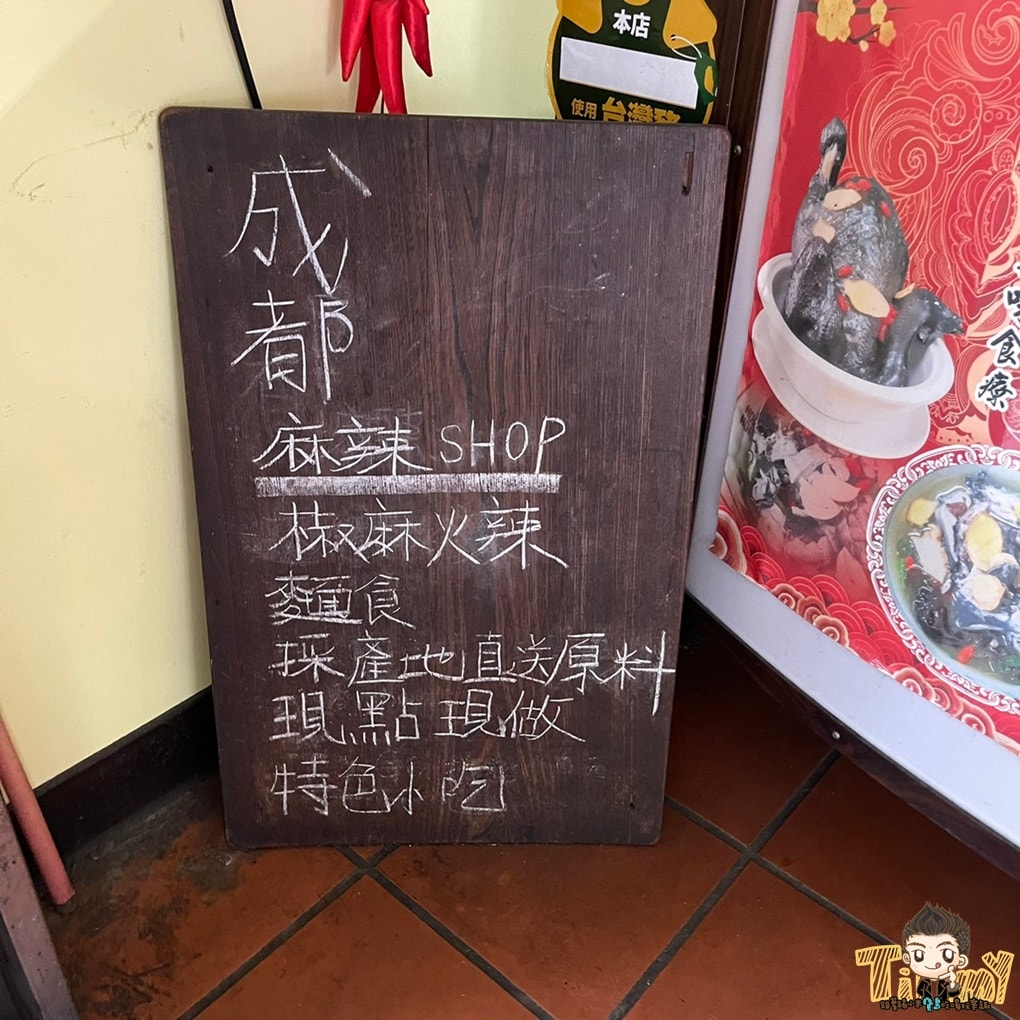 本店
使用台灣豬
成
都
麻辣 SHOP
椒麻火辣
麵食
採產地直送原料
現點現做
特色小吃
食療
Timmy